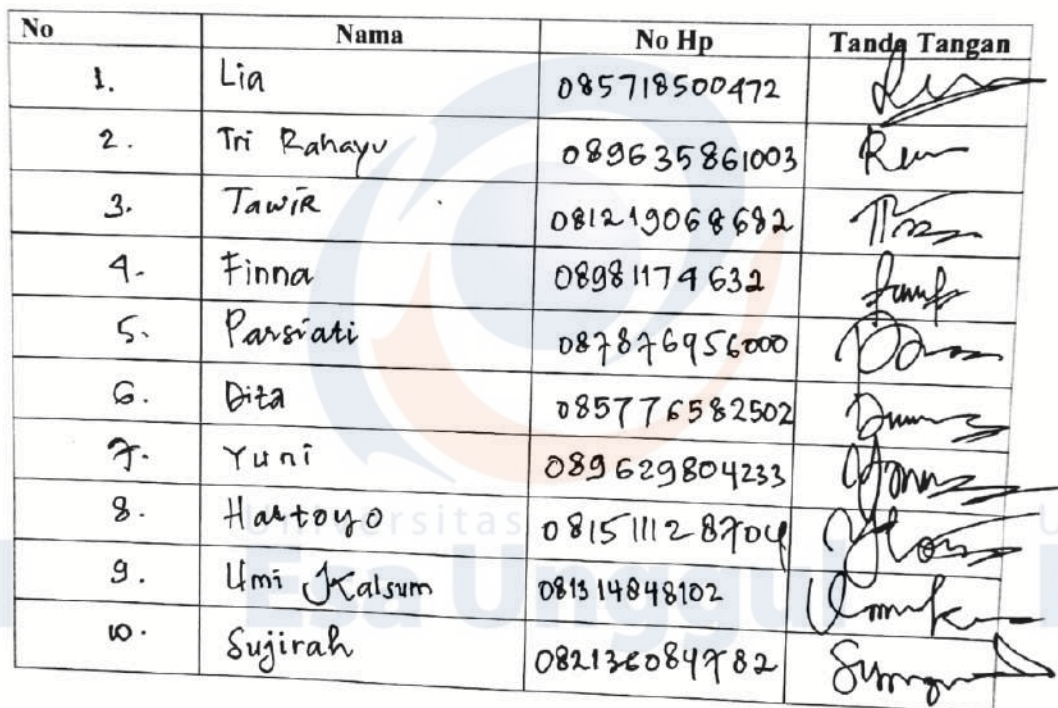 No Nama No Hp Tanda Tangan
1. Lia 085718500472
2. Tri Rahayu 089635861003
3. Tawir 081219068682
4. Finna 08981174632
5. Parsiati 087876956000
6. Dita 085776582502
7. Yuni 089629804233
8. Hartoyo 081511128704
Universitas
Esa Unggul
9. Umi Kalsum 081314848102
10. Sujirah 082136084782